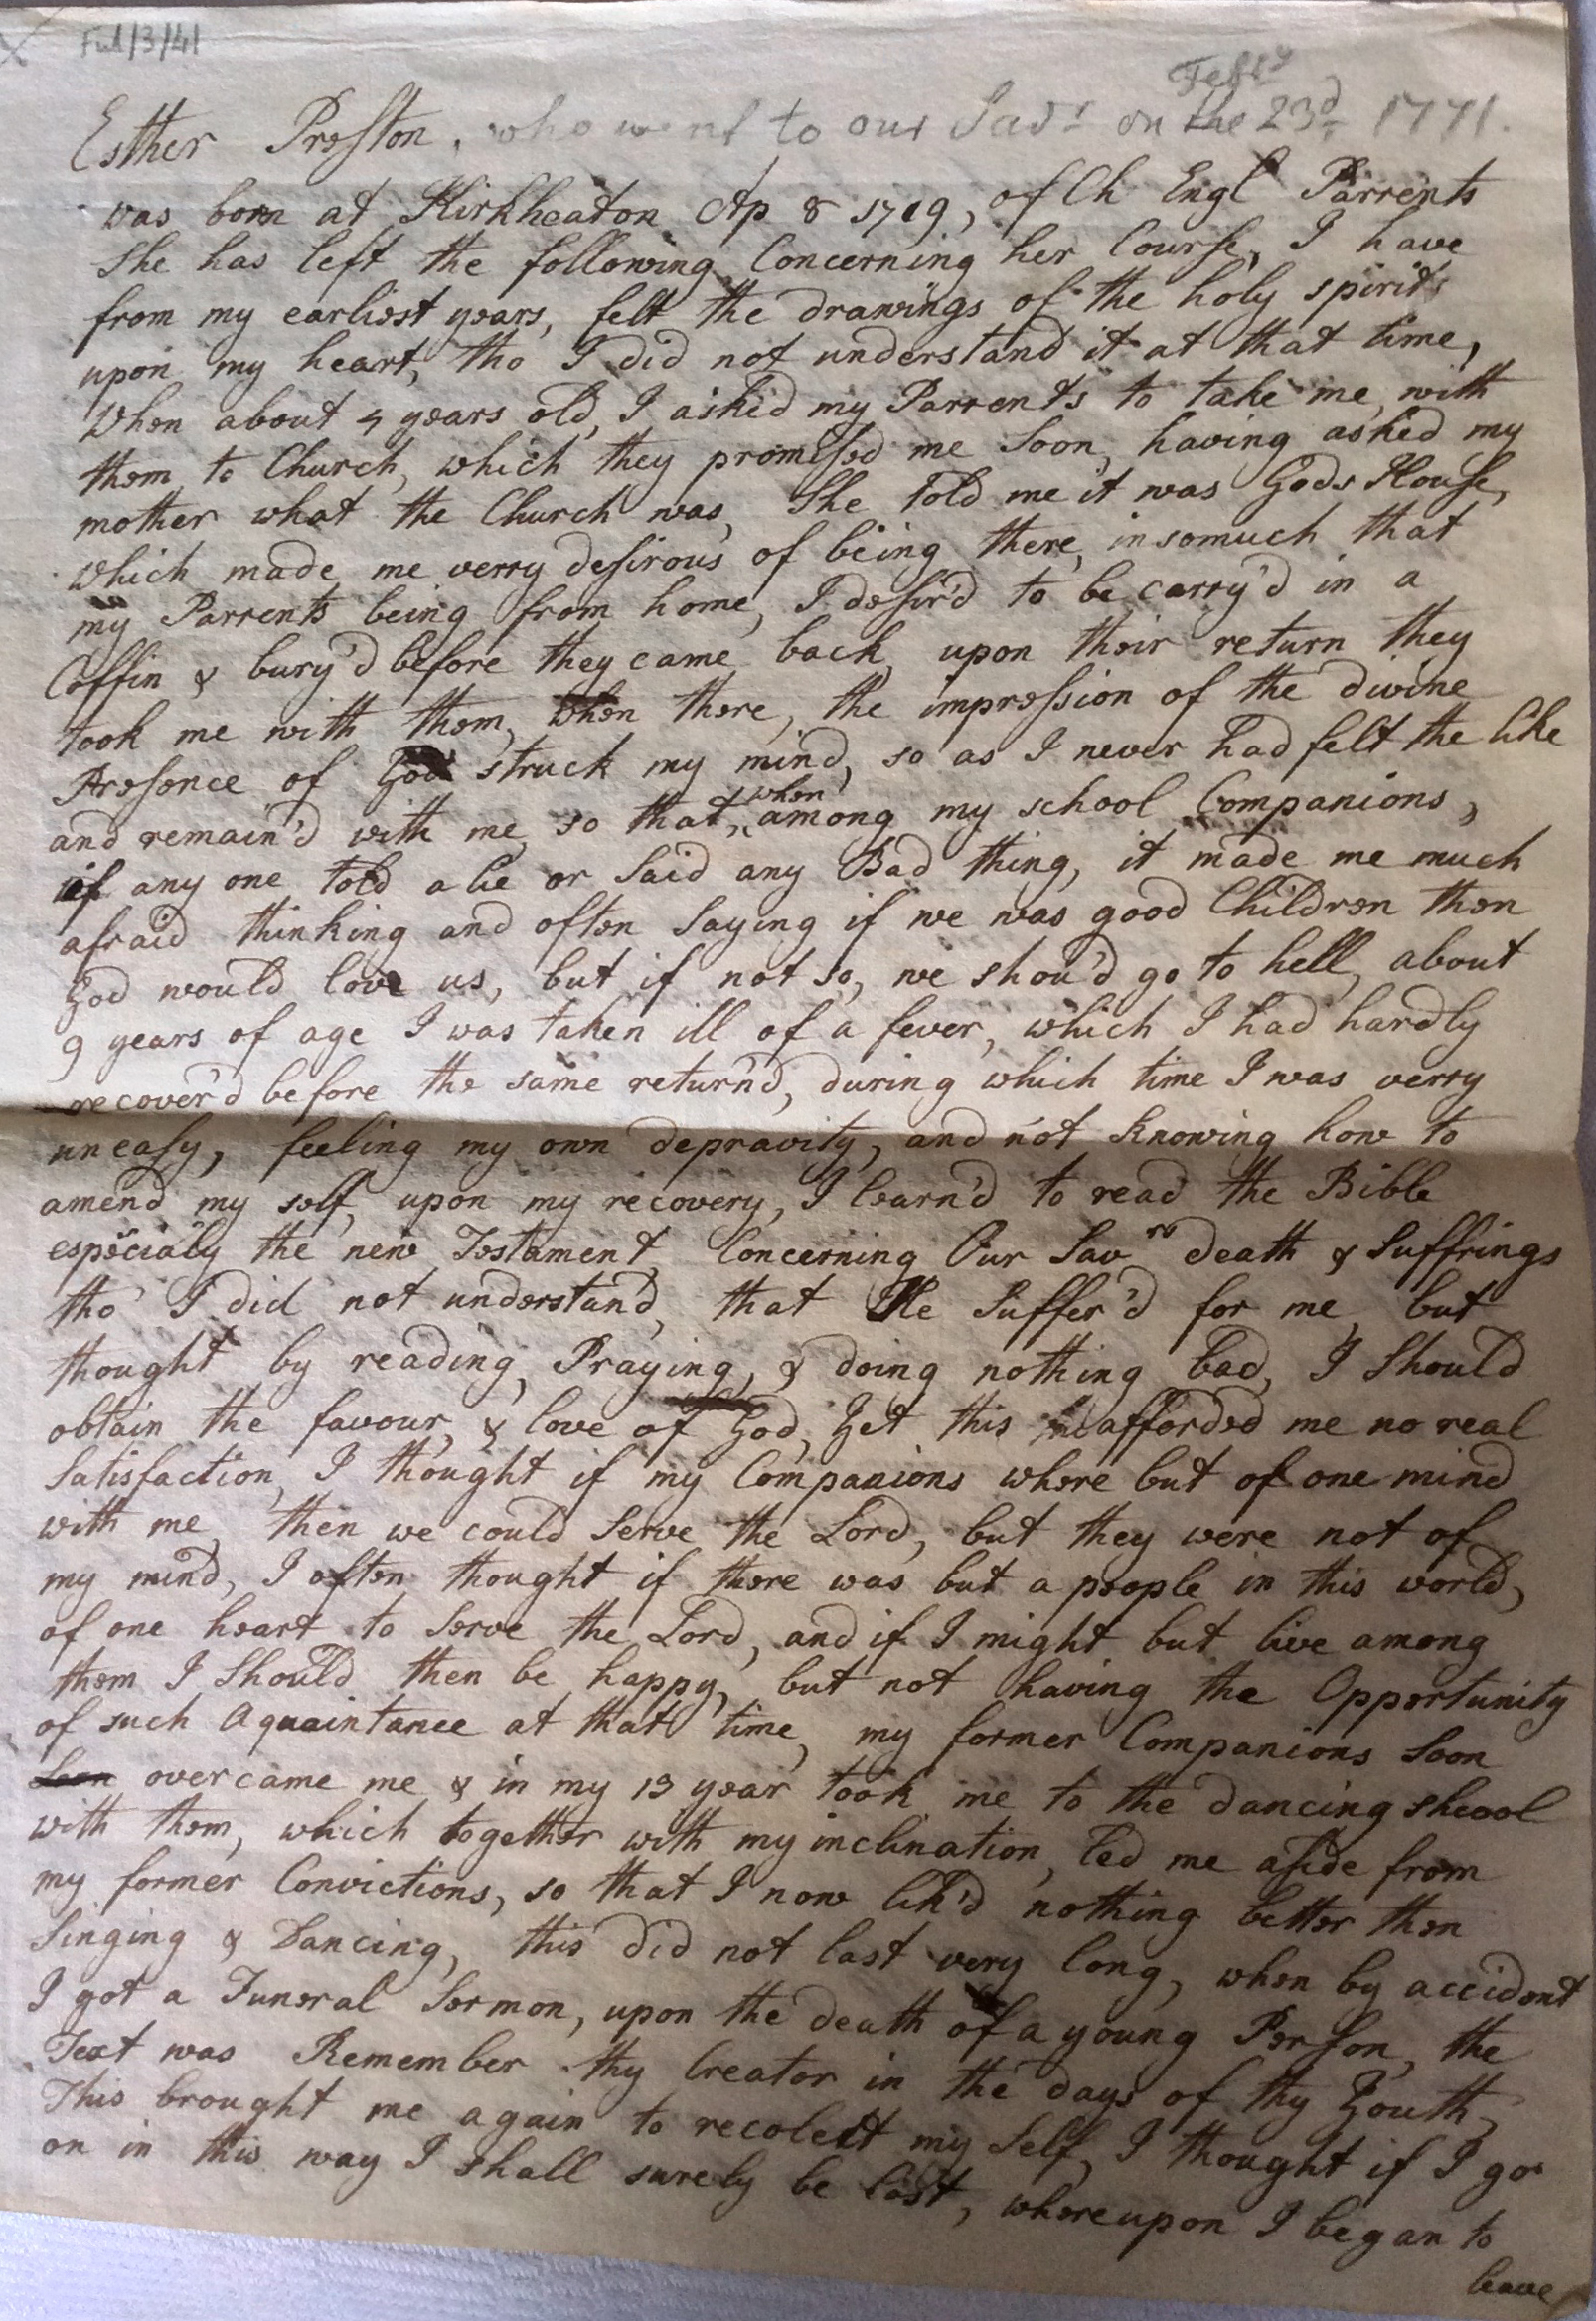 Ful/3/41
Feb:ry
Esther Preston, who went to our Sav:r on the 23d 1771.
was born at Kirkheaton Ap 8 1719, of Ch Engl Parrents
She has left the following Concerning her Course, I have
from my earliest years, felt the drawings of the holy spirit
upon my heart, tho I did not understand it at that time,
When about 4 years old, I asked my Parrents to take me with
them to Church, which they promised me Soon, having asked my
mother what the Church was, She told me it was Gods House,
which made me verry desirous of being there, insomuch that
my Parrents being from home, I desir'd to be carry'd in a
Coffin & bury'd before they came back, upon their return they
took me with them, when there, the impression of the divine
Presence of God struck my mind, so as I never had felt the like
and remain'd with me, so that, when among my school Companions,
if any one told a lie or Said any Bad thing, it made me much
afraid thinking and often Saying if we was good Children then
God would love us, but if not so, we shou'd go to hell, about
9 years of age I was taken ill of a fever, which I had hardly
recover'd before the same return'd, during which time I was verry
uneasy, feeling my own depravity, and not knowing how to
amend my self, upon my recovery, I learn'd to read the Bible
especialy the new Testament, Concerning Our Savrs death & Suffrings
tho' I did not understand, that He Suffer'd for me, but
thought by reading, Praying, & doing nothing bad, I Should
obtain the favour, & love of God, Yet this afforded me no real
Satisfaction, I thought if my Companions where but of one mind
with me, then we could Serve the Lord, but they were not of
my mind, I often thought if there was but a people in this world,
of one heart to Serve the Lord, and if I might but live among
them I Should then be happy, but not having the Opportunity
of such Aquaintance at that time, my former Companions Soon
Soon overcame me & in my 13 year took me to the dancing shcool
with them, which together with my inclination, led me aside from
my former Convictions, so that I now lik'd nothing better then
Singing & Dancing, this did not last very long, when by accident
I got a Funeral Sermon, upon the death of a young Person, the
Text was Remember thy Creator in the days of thy Youth,
This brought me again to recolect my Self, I thought if I go
on in this way I shall surely be lost, whereupon I began to
leave